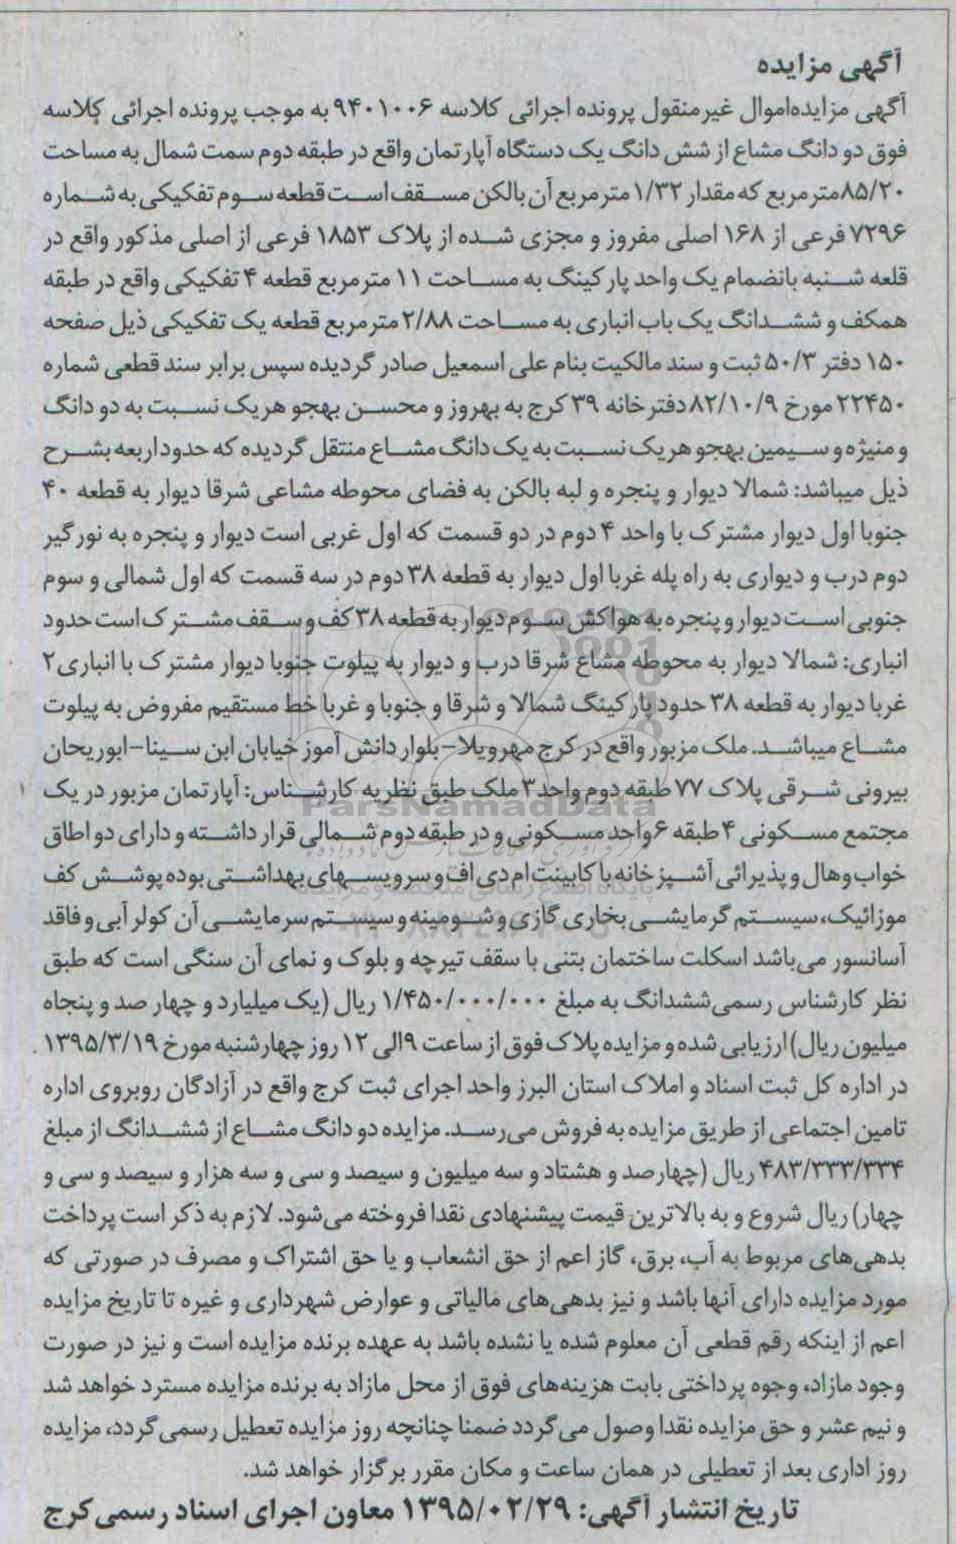 آگهی مزایده
آگهی مزایده‌اموال غیرمنقول پرونده اجرائی کلاسه ۹۴۰۱۰۰۶ به موجب پرونده اجرائی کلاسه
فوق دو دانگ مشاع از شش دانگ یک دستگاه آپارتمان واقع در طبقه دوم سمت شمال به مساحت
۸۵/۲۰مترمربع که مقدار ۱/۳۲ مترمربع آن بالکن مسقف است قطعه سوم تفکیکی به شماره
۷۲۹۶ فرعی از ۱۶۸ اصلی مفروز و مجزی شده از پلاک ۱۸۵۳ فرعی از اصلی مذکور واقع در
قلعه شنبه بانضمام یک واحد پارکینگ به مساحت ۱۱ مترمربع قطعه ۴ تفکیکی واقع در طبقه
همکف و ششدانگ یک باب انباری به مساحت ۲/۸۸ مترمربع قطعه یک تفکیکی ذیل صفحه
۱۵۰ دفتر ۵۰/۳ ثبت و سند مالکیت بنام علی اسمعیل صادر گردیده سپس برابر سند قطعی شماره
۲۲۴۵۰ مورخ ۸۲/۱۰/۹ دفترخانه ۳۹ کرج به بهروز و محسن بهجو هریک نسبت به دو دانگ
و منیژه و سیمین بهجو هریک نسبت به یک دانگ مشاع منتقل گردیده که حدود اربعه بشرح
ذیل میباشد: شمالا دیوار و پنجره و لبه بالکن به فضای محوطه مشاعی شرقا دیوار به قطعه ۴۰
جنوبا اول دیوار مشترک با واحد ۴ دوم در دو قسمت که اول غربی است دیوار و پنجره به نورگیر
دوم درب و دیواری به راه پله غربا اول دیوار به قطعه ۳۸ دوم در سه قسمت که اول شمالی و سوم
جنوبی است دیوار و پنجره به هواکش سوم دیوار به قطعه ۳۸ کف و سقف مشترک است حدود
انباری: شمالا دیوار به محوطه مشاع شرقا درب و دیوار به پیلوت جنوبا دیوار مشترک با انباری۲
غربا دیوار به قطعه ۳۸ حدود پارکینگ شمالا و شرقا و جنوبا و غربا خط مستقیم مفروض به پیلوت
مشاع میباشد. ملک مزبور واقع در کرج مهرویلا-بلوار دانش آموز خیابان ابن سینا-ابوریحان
بیرونی شرقی پلاک ۷۷ طبقه دوم واحد ۳ ملک طبق نظریه کارشناس: آپارتمان مزبور در یک
ParsNamadData
مجتمع مسکونی ۴ طبقه ۶واحد مسکونی و در طبقه دوم شمالی قرار داشته و دارای دو اطاق
خواب وهال و پذیرائی آشپزخانه با کابینت ام دی اف و سرویسهای بهداشتی بوده پوشش کف
موزائیک، سیستم گرمایشی بخاری گازی و شومینه و سیستم سرمایشی آن کولر آبی و فاقد
آسانسور می‌باشد اسکلت ساختمان بتنی با سقف تیرچه و بلوک و نمای آن سنگی است که طبق
نظر کارشناس رسمی‌ششدانگ به مبلغ ۱/۴۵۰/۰۰۰/۰۰۰ ریال (یک میلیارد و چهار صد و پنجاه
میلیون ریال) ارزیابی شده و مزایده پلاک فوق از ساعت ۹الی ۱۲ روز چهارشنبه مورخ ۱۳۹۵/۳/۱۹
در اداره کل ثبت اسناد و املاک استان البرز واحد اجرای ثبت کرج واقع در آزادگان روبروی اداره
تامین اجتماعی از طریق مزایده به فروش می‌رسد. مزایده دو دانگ مشاع از ششدانگ از مبلغ
۴۸۳/۳۳۳/۳۳۴ ریال (چهارصد و هشتاد و سه میلیون و سیصد و سی و سه هزار و سیصد و سی و
چهار) ریال شروع و به بالاترین قیمت پیشنهادی نقدا فروخته می‌شود. لازم به ذکر است پرداخت
بدهی‌های مربوط به آب، برق، گاز اعم از حق انشعاب و یا حق اشتراک و مصرف در صورتی که
مورد مزایده دارای آنها باشد و نیز بدهی‌های مالیاتی و عوارض شهرداری و غیره تا تاریخ مزایده
اعم از اینکه رقم قطعی آن معلوم شده یا نشده باشد به عهده برنده مزایده است و نیز در صورت
وجود مازاد، وجوه پرداختی بابت هزینه‌های فوق از محل مازاد به برنده مزایده مسترد خواهد شد
و نیم عشر و حق مزایده نقدا وصول می‌گردد ضمنا چنانچه روز مزایده تعطیل رسمی‌گردد، مزایده
روز اداری بعد از تعطیلی در همان ساعت و مکان مقرر برگزار خواهد شد.
تاریخ انتشار آگهی: ۱۳۹۵/۰۲/۲۹ معاون اجرای اسناد رسمی کرج